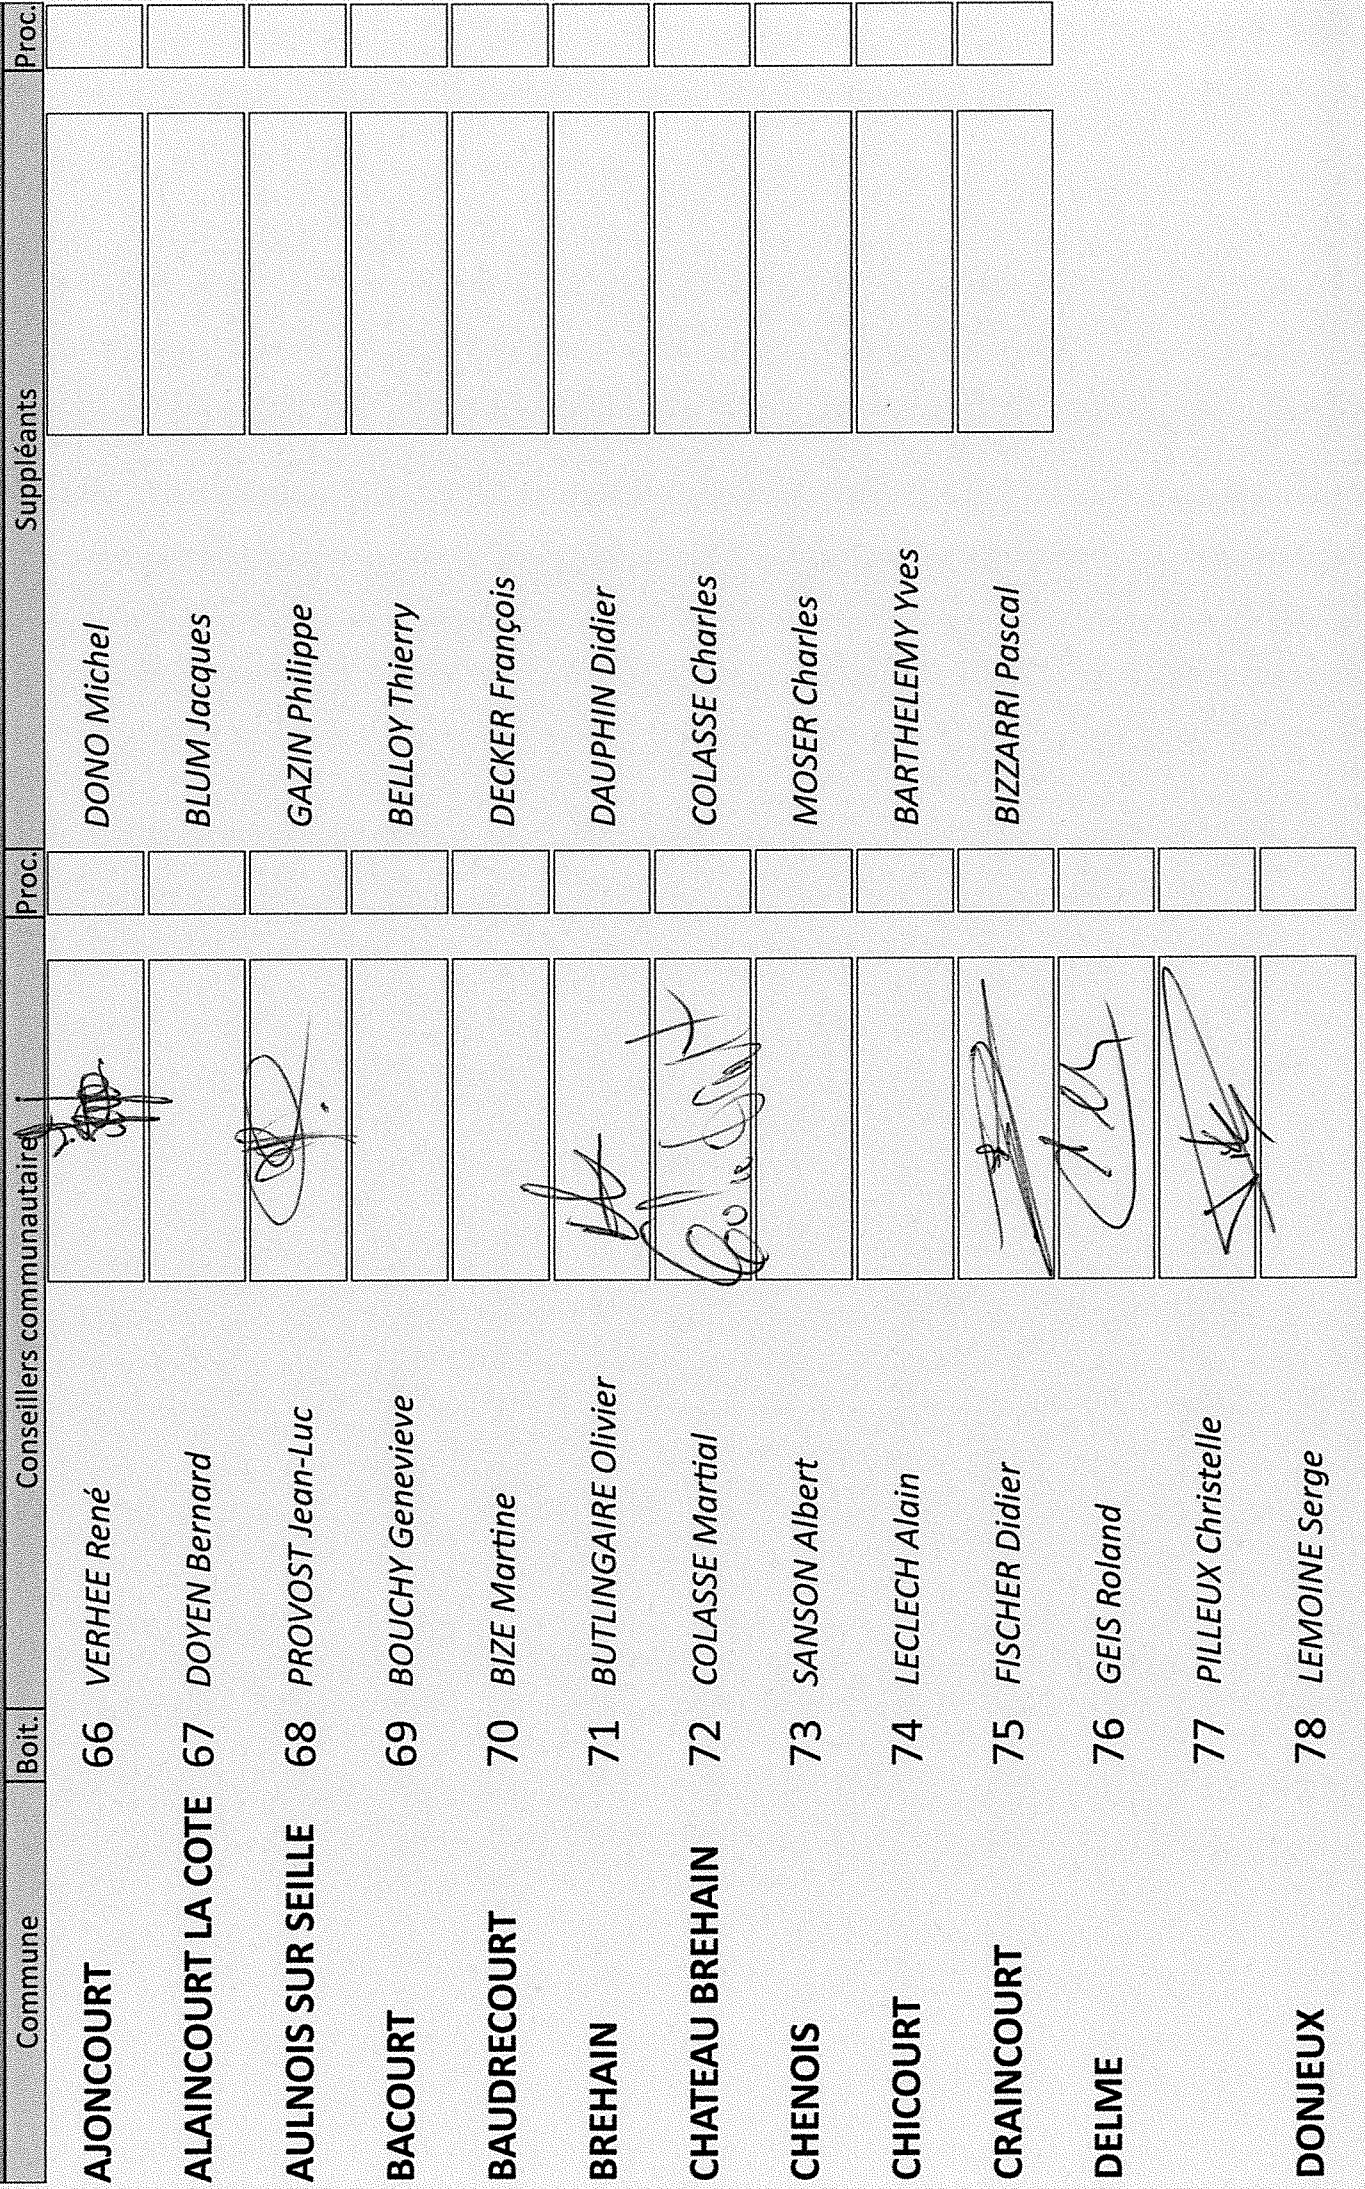 Commune Boit. Conseillers communautaires Proc. Suppléants Proc.
AJONCOURT 66 VERHEE René DONO Michel
ALAINCOURT LA COTE 67 DOYEN Bernard BLUM Jacques
AULNOIS SUR SEILLE 68 PROVOST Jean-Luc GAZIN Philippe
BACOURT 69 BOUCHY Genevieve BELLOY Thierry
BAUDRECOURT 70 BIZE Martine DECKER François
BREHAIN 71 BUTLINGAIRE Olivier DAUPHIN Didier
CHATEAU BREHAIN 72 COLASSE Martial COLASSE Charles
CHENOIS 73 SANSON Albert MOSER Charles
CHICOURT 74 LECLECH Alain BARTHELEMY Yves
CRAINCOURT 75 FISCHER Didier BIZZARRI Pascal
DELME 76 GEIS Roland
77 PILLEUX Christelle
DONJEUX 78 LEMOINE Serge